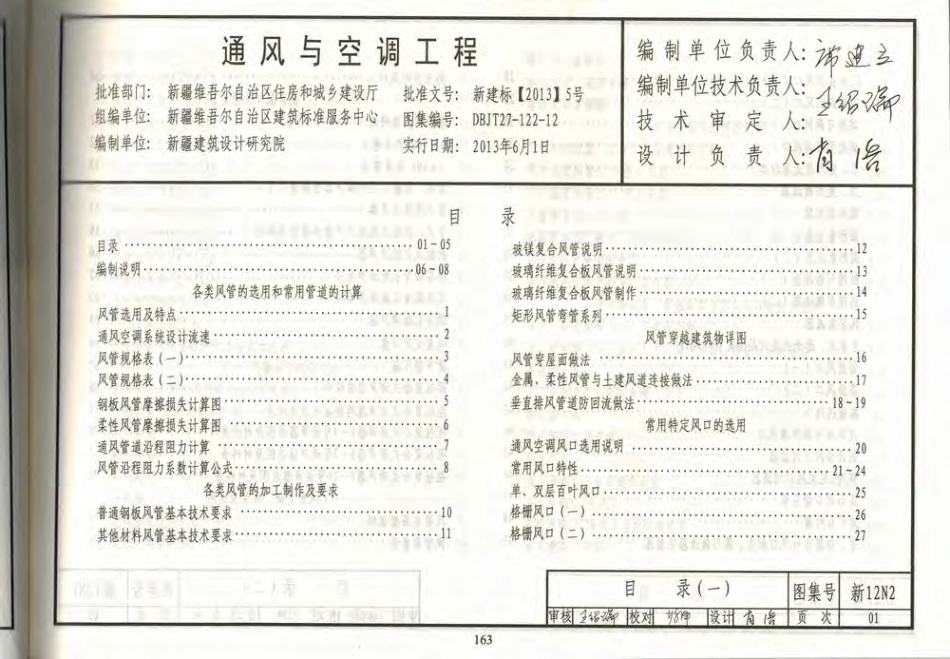 通风与空调工程
批准部门： 新疆维吾尔自治区住房和城乡建设厅 批准文号： 新建标【2013】5号
组编单位： 新疆维吾尔自治区建筑标准服务中心 图集编号： DBJT27-122-12
编制单位： 新疆建筑设计研究院 实行日期： 2013年6月1日
编制单位负责人：
编制单位技术负责人：
技术审定人：
设计负责人：肖浩
目 录
目录 01～05
编制说明 06～08
各类风管的选用和常用管道的计算
风管选用及特点 1
通风空调系统设计流速 2
风管规格表（一） 3
风管规格表（二） 4
钢板风管摩擦损失计算图 5
柔性风管摩擦损失计算图 6
通风管道沿程阻力计算 7
风管沿程阻力系数计算公式 8
各类风管的加工制作及要求
普通钢板风管基本技术要求 10
其他材料风管基本技术要求 11
玻镁复合风管说明 12
玻璃纤维复合板风管说明 13
玻璃纤维复合板风管制作 14
矩形风管弯管系列 15
风管穿越建筑物详图
风管穿屋面做法 16
金属、柔性风管与土建风道连接做法 17
垂直排风管道防回流做法 18～19
常用特定风口的选用
通风空调风口选用说明 20
常用风口特性 21～24
单、双层百叶风口 25
格栅风口（一） 26
格栅风口（二） 27
目 录（一） 图集号 新12N2
审核 校对 设计 肖浩 页 次 01
163